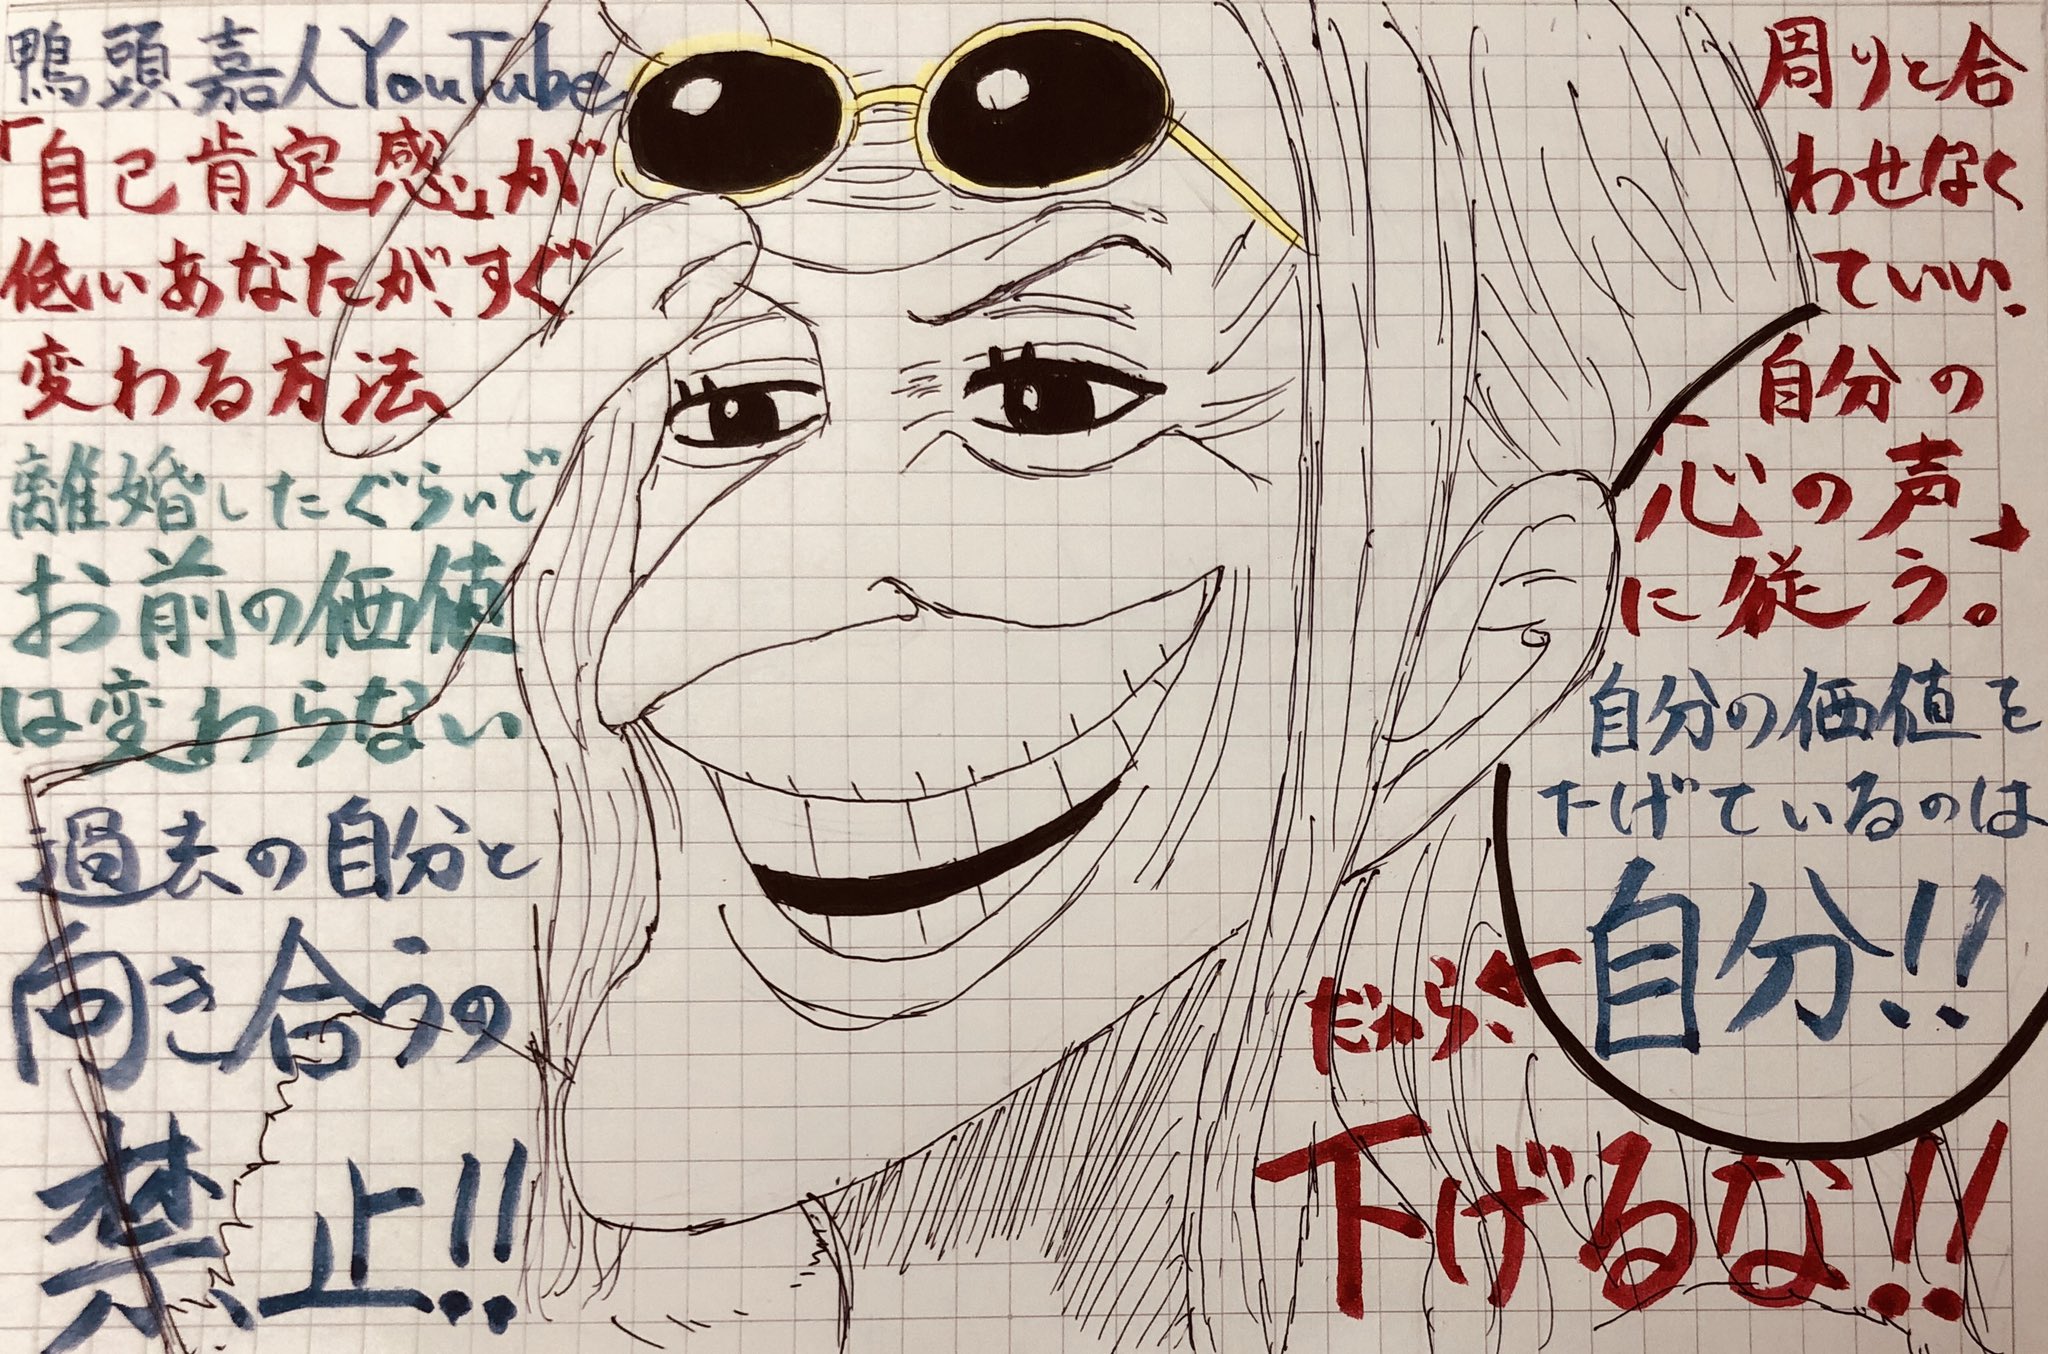 鴨頭嘉人YouTube
「自己肯定感」が
低いあなたが、すぐ
変わる方法
離婚したぐらいで
お前の価値
は変わらない
過去の自分と
向き合うの
禁止!!
周りと合
わせなく
ていい、
自分の
「心の声」
に従う。
自分の価値を
下げているのは
自分!!
だから、
下げるな!!